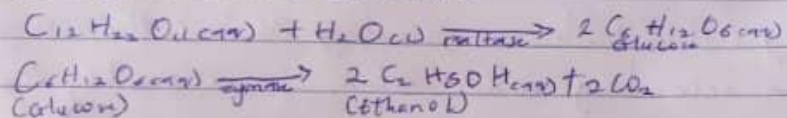 C12 H22 O11(aq) + H2O(l) maltase → 2 C6 H12 O6(aq)
Glucose
C6H12O6(aq) zymase → 2 C2 H5O H(aq) + 2CO2
(Glucose) (Ethanol)